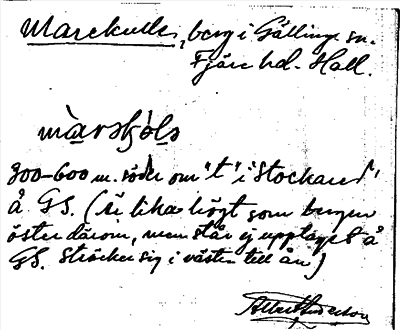 Marekulls, berg i Gällinge sn.
Fjäre hd. Hall.
màrskóls
300-600 m. söder om "t" i Stockared
å GS. (Är lika högt som bergen
öster därom, men står ej upptaget å
GS. Sträcker sig i väster till ån)